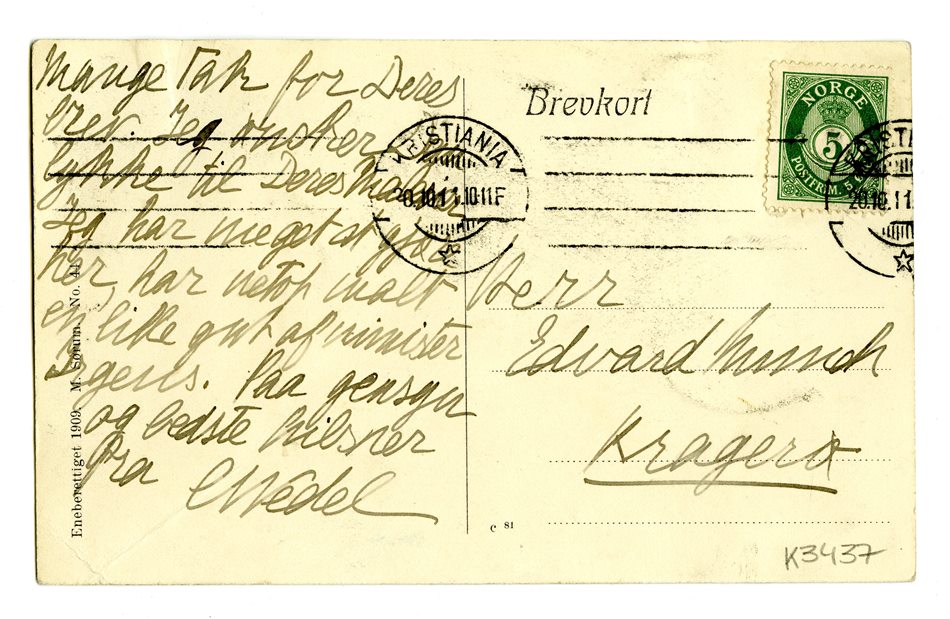 Mange Tak for Deres
brev. Jeg ønsker
lykke til Deres
Jeg har meget at gjøre
her, har netop malt
en lille gut af minister
Irgens. Paa gensyn
og bedste hilsner
fra
Wedel
Eneberettiget 1909. M. Sørum. No. 41
Brevkort
KRISTIANIA
20.10.11.10-11F
NORGE
5
POSTFRIM.
KRISTI
20.10.11
Herr
Edvard Munch
Kragerø
c 81
K3437